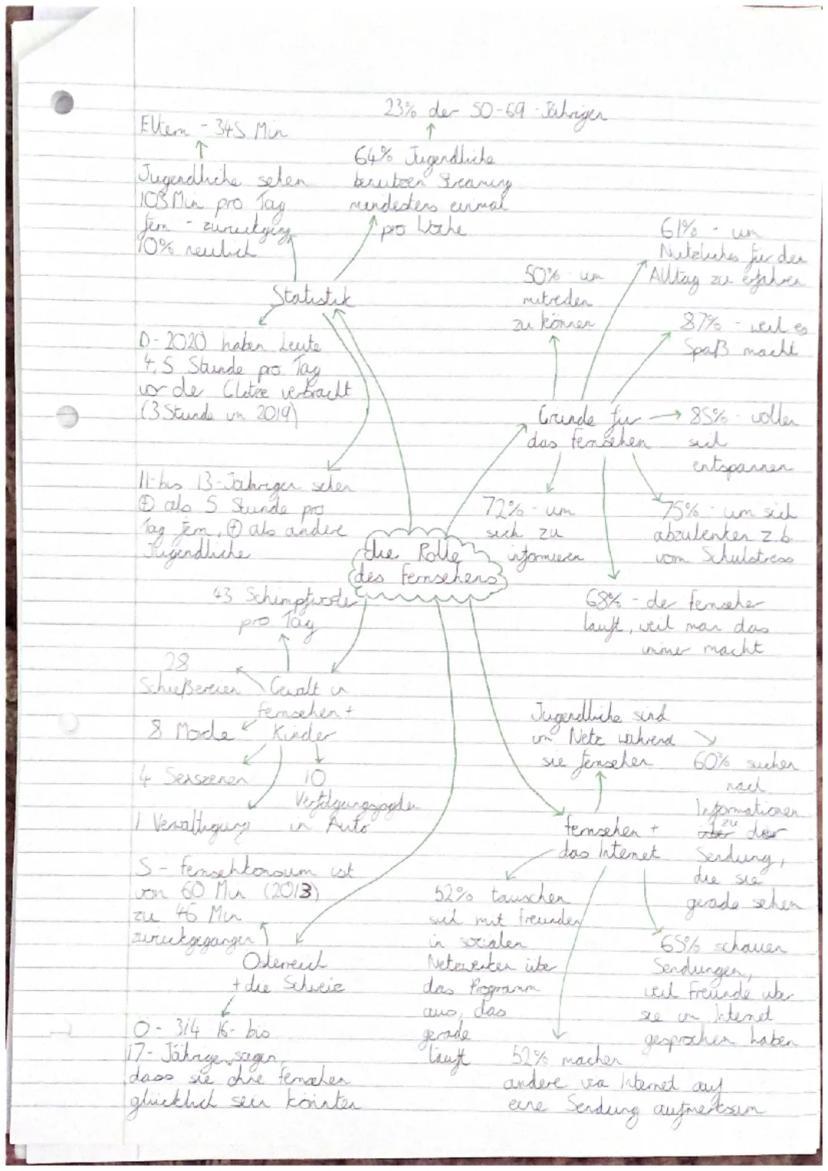 23% der 50-69-Jährigen
Eltern - 345 Min
64% Jugendliche
benutzen Streaming
mindestens einmal
pro Woche
Jugendliche sehen
103 Min pro Tag
fern - zurückging
10% neulich
Statistik
D - 2020 haben Leute
4,5 Stunde pro Tag
vor der Glotze verbracht
(3 Stunde im 2019)
11- bis 13-Jährigen sehen
⊕ als 5 Stunde pro
Tag fern, ⊕ als andere
Jugendliche
61% - um
Nützliches für den
Alltag zu erfahren
50% - um
mitreden
zu können
87% - weil es
Spaß macht
Gründe für
das Fernsehen
85% - wollen
sich
entspannen
72% - um
sich zu
informieren
75% - um sich
abzulenken z.b
vom Schulstress
68% - der Fernseher
läuft, weil man das
immer macht
die Rolle
des Fernsehens
43 Schimpfworte
pro Tag
28
Schießereien
Gewalt in
Fernsehen +
Kinder
8 Morde
4 Sexszenen
10
Verfolgungsjagden
in Auto
1 Vergewaltigung
Jugendliche sind
im Netz während
sie fernsehen
60% suchen
nach
Informationen
zu
der
Sendung,
die sie
gerade sehen
Fernsehen +
das Internet
S - Fernsehkonsum ist
von 60 Min (2013)
zu 46 Min
zurückgegangen
Österreich
+ die Schweiz
O - 3/4 16- bis
17-Jährige sagen,
dass sie ohne Fernsehen
glücklich sein könnten
52% tauschen
sich mit Freunden
in sozialen
Netzwerken über
das Programm
aus, das
gerade
läuft
65% schauen
Sendungen,
weil Freunde über
sie im Internet
gesprochen haben
52% machen
andere via Internet auf
eine Sendung aufmerksam